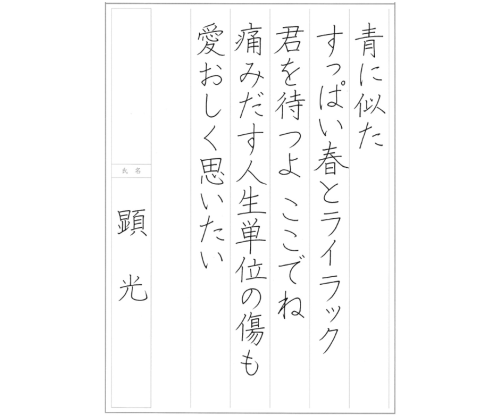 青に似た
すっぱい春とライラック
君を待つよ ここでね
痛みだす人生単位の傷も
愛おしく思いたい
氏名
顕光